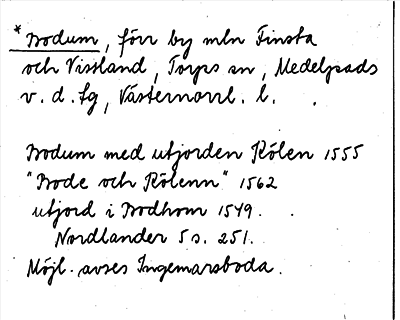 *Bodum, förr by mln Finsta
och Vissland, Torps sn, Medelpads
v. d. fg, Västernorrl. l.
Bodum med utjorden Kölen 1555
"Bode och Kölenn" 1562
utjord i Bodhom 1549.
Nordlander 5 s. 251.
Möjl. avses Ingemarsboda.